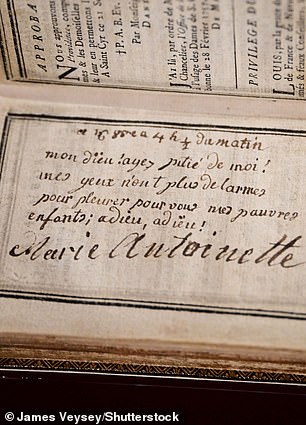 APPROBA
Nous approuvons
Providence
& les Demoiselles
& leur en permettons l'
A Saint Cyr ce 25 S
† P. A. Ev.
Par Monseig
DAN
J'Ai lû, par ordre de
Chancelier, l'Office
l'usage des Dames de S
le 28 Février
PRIVILEGE DU
LOUIS, par la grac
de France & de Navarre
ce 16 8bre a 4 h ½ du matin
mon dieu! ayez pitié de moi!
mes yeux n'ont plus de larmes
pour pleurer pour vous mes pauvres
enfants; adieu, adieu!
Marie Antoinette
© James Veysey/Shutterstock